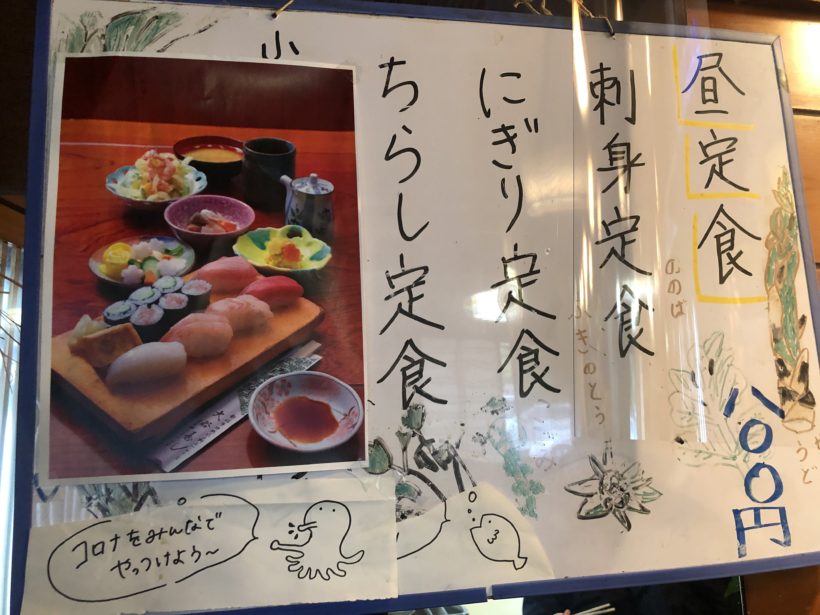 昼定食
刺身定食
にぎり定食
ちらし定食
小
八〇〇円
ののば
ふきのとう
うど
コロナをみんなで
やっつけよう〜